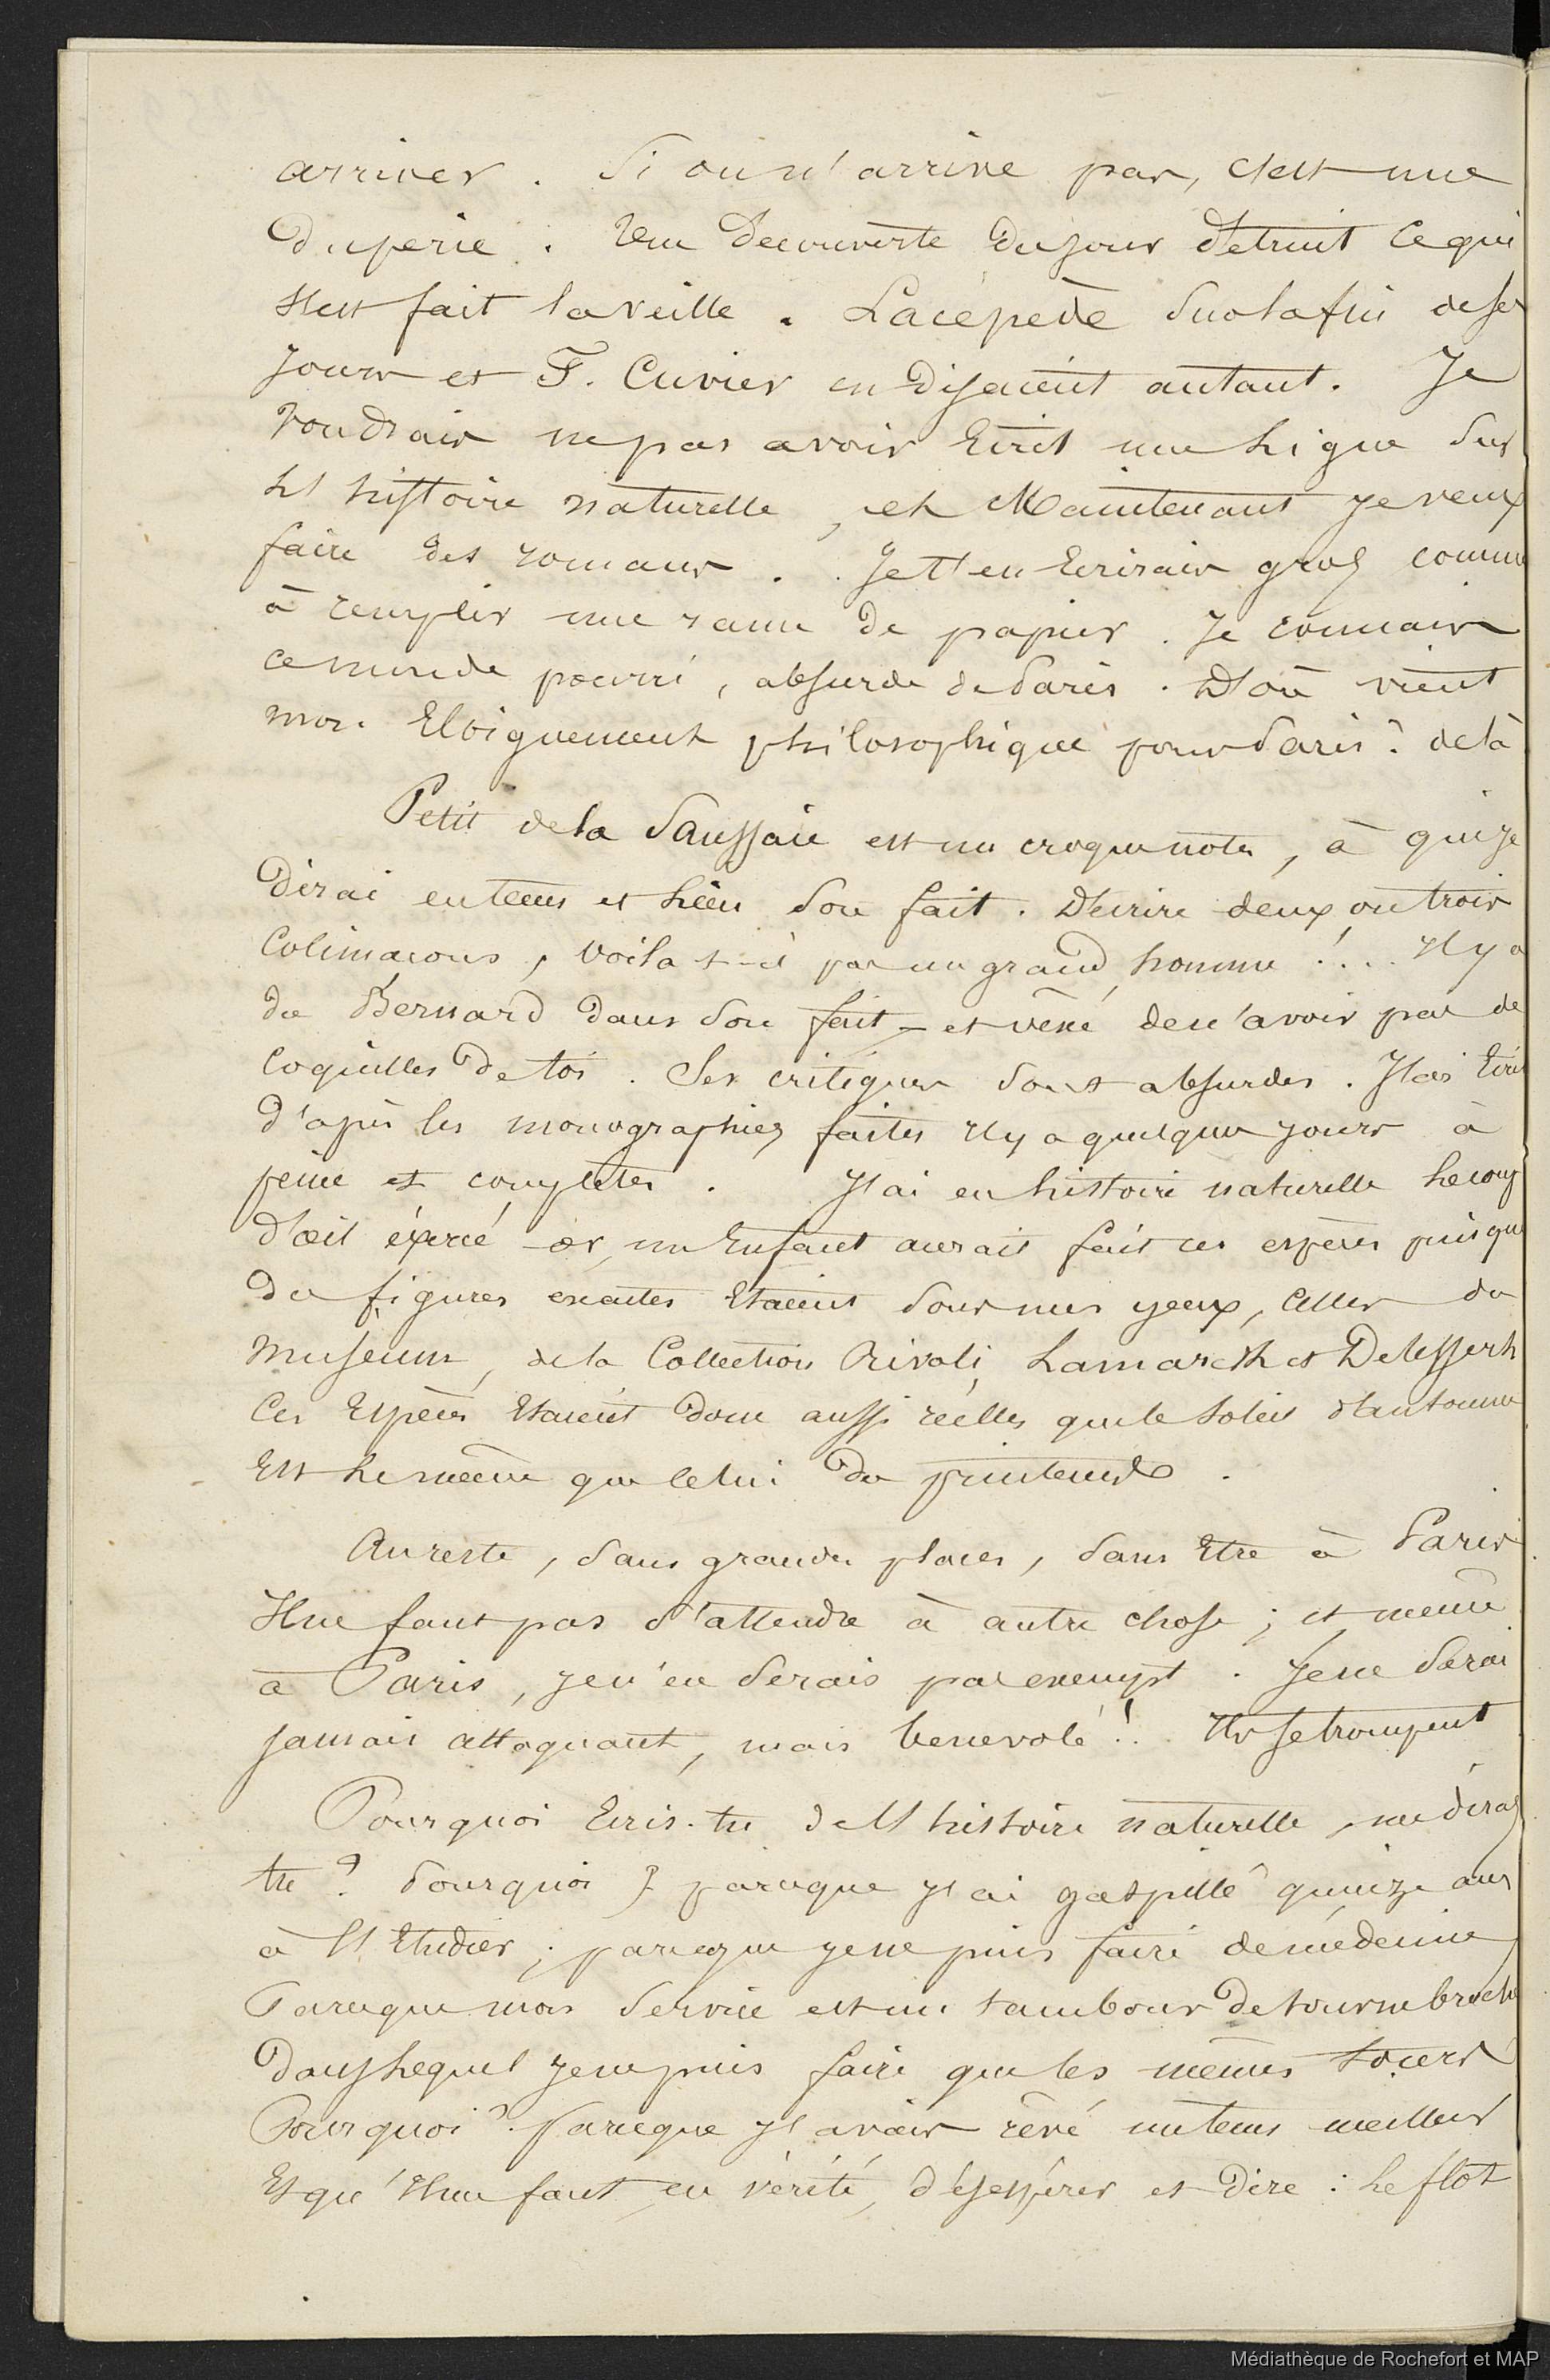 arriver. Si on n'arrive pas, c'est une
duperie. Une decouverte du jour detruit ce qui
s'est fait la veille. Lacépède sur la fin de ses
jours et F. Cuvier en disaient autant. Je
voudrais ne pas avoir Ecrit une ligne sur
l'histoire naturelle, et Maintenant je veux
faire des romans. Je t'en Ecrirais gros comme
à remplir une rame de papier. Je connais
ce monde pourri, absurde de Paris. D'où vient
mon Eloignement philosophique pour Paris? de là
Petit de la Saussaie est un croquenotes, à qui je
dirai en tems et lieu son fait. Décrire deux ou trois
Colimaçons, voila t-il pas un grand homme!... Il y a
du Bernard dans son fait - et vexé de n'avoir pas de
coquilles de toi. Ses critiques sont absurdes. J'ai Ecrit
d'après les monographies faites il y a quelques jours à
peine et completes. J'ai en histoire naturelle le coup
d'œil éxercé - or, un Enfant aurait fait ces espèces puisque
des figures exactes Etaient sous mes yeux, celles du
Museum, de la Collection Rivoli, Lamarck et Delessert
Ces Espèces Etaient donc aussi réelles que le soleil d'automne
Est le même que celui du printemps.
Au reste, sans grandes places, sans Etre à Paris
Il ne faut pas s'attendre à autre chose; et même
à Paris, je n'en serais pas exempt. Je ne serai
jamais attaquant, mais benevole!. Ils se trompent
Pourquoi Ecris-tu de l'histoire naturelle, me diras
tu? Pourquoi? parceque j'ai gaspillé quinze ans
à l'Etudier; parceque je ne puis faire de médecine
Parceque mon Service est un tambour de tournebroche
dans lequel je ne puis faire que les mêmes tours
Pourquoi? parceque j'avais rêvé un tems meilleur
Et qu'il me faut, en vérité, désespérer et dire: le flot
Médiathèque de Rochefort et MAP